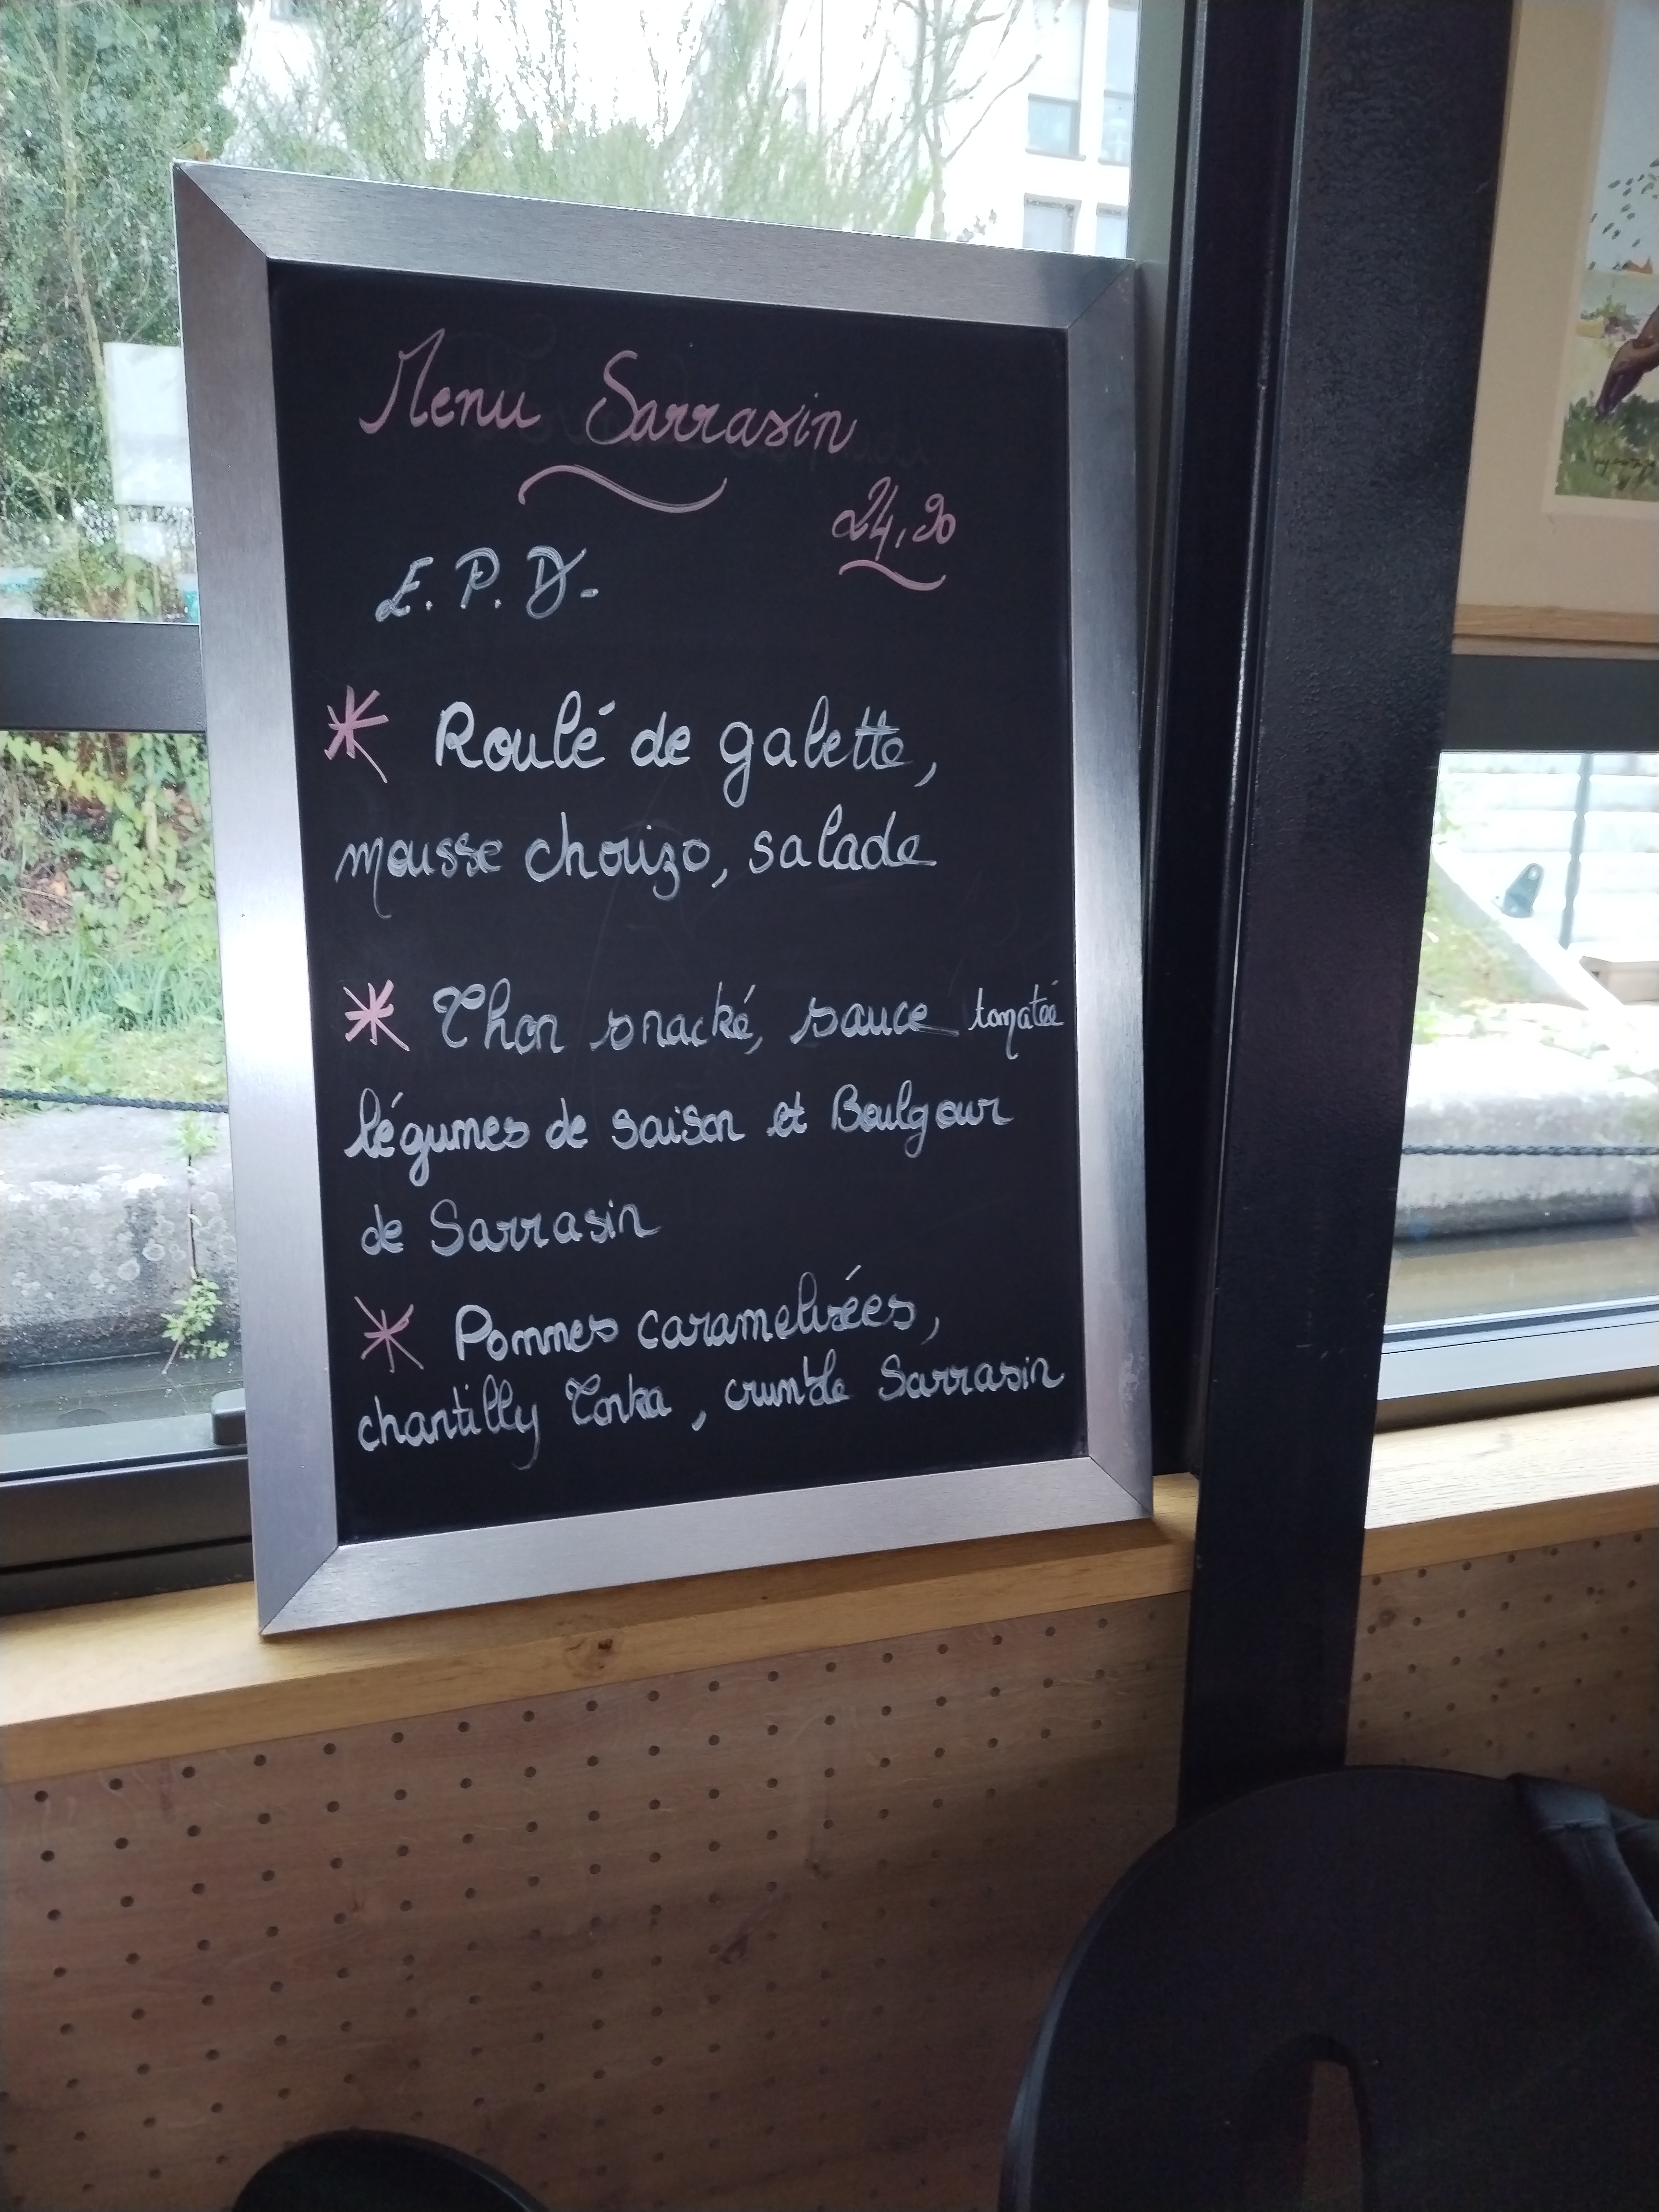 Menu Sarrasin
24,90
E.P.D.
* Roulé de galette,
mousse chorizo, salade
* Thon snacké, sauce tomatée
légumes de saison et Boulgour
de Sarrasin
* Pommes caramelisées,
chantilly Tonka, crumble Sarrasin